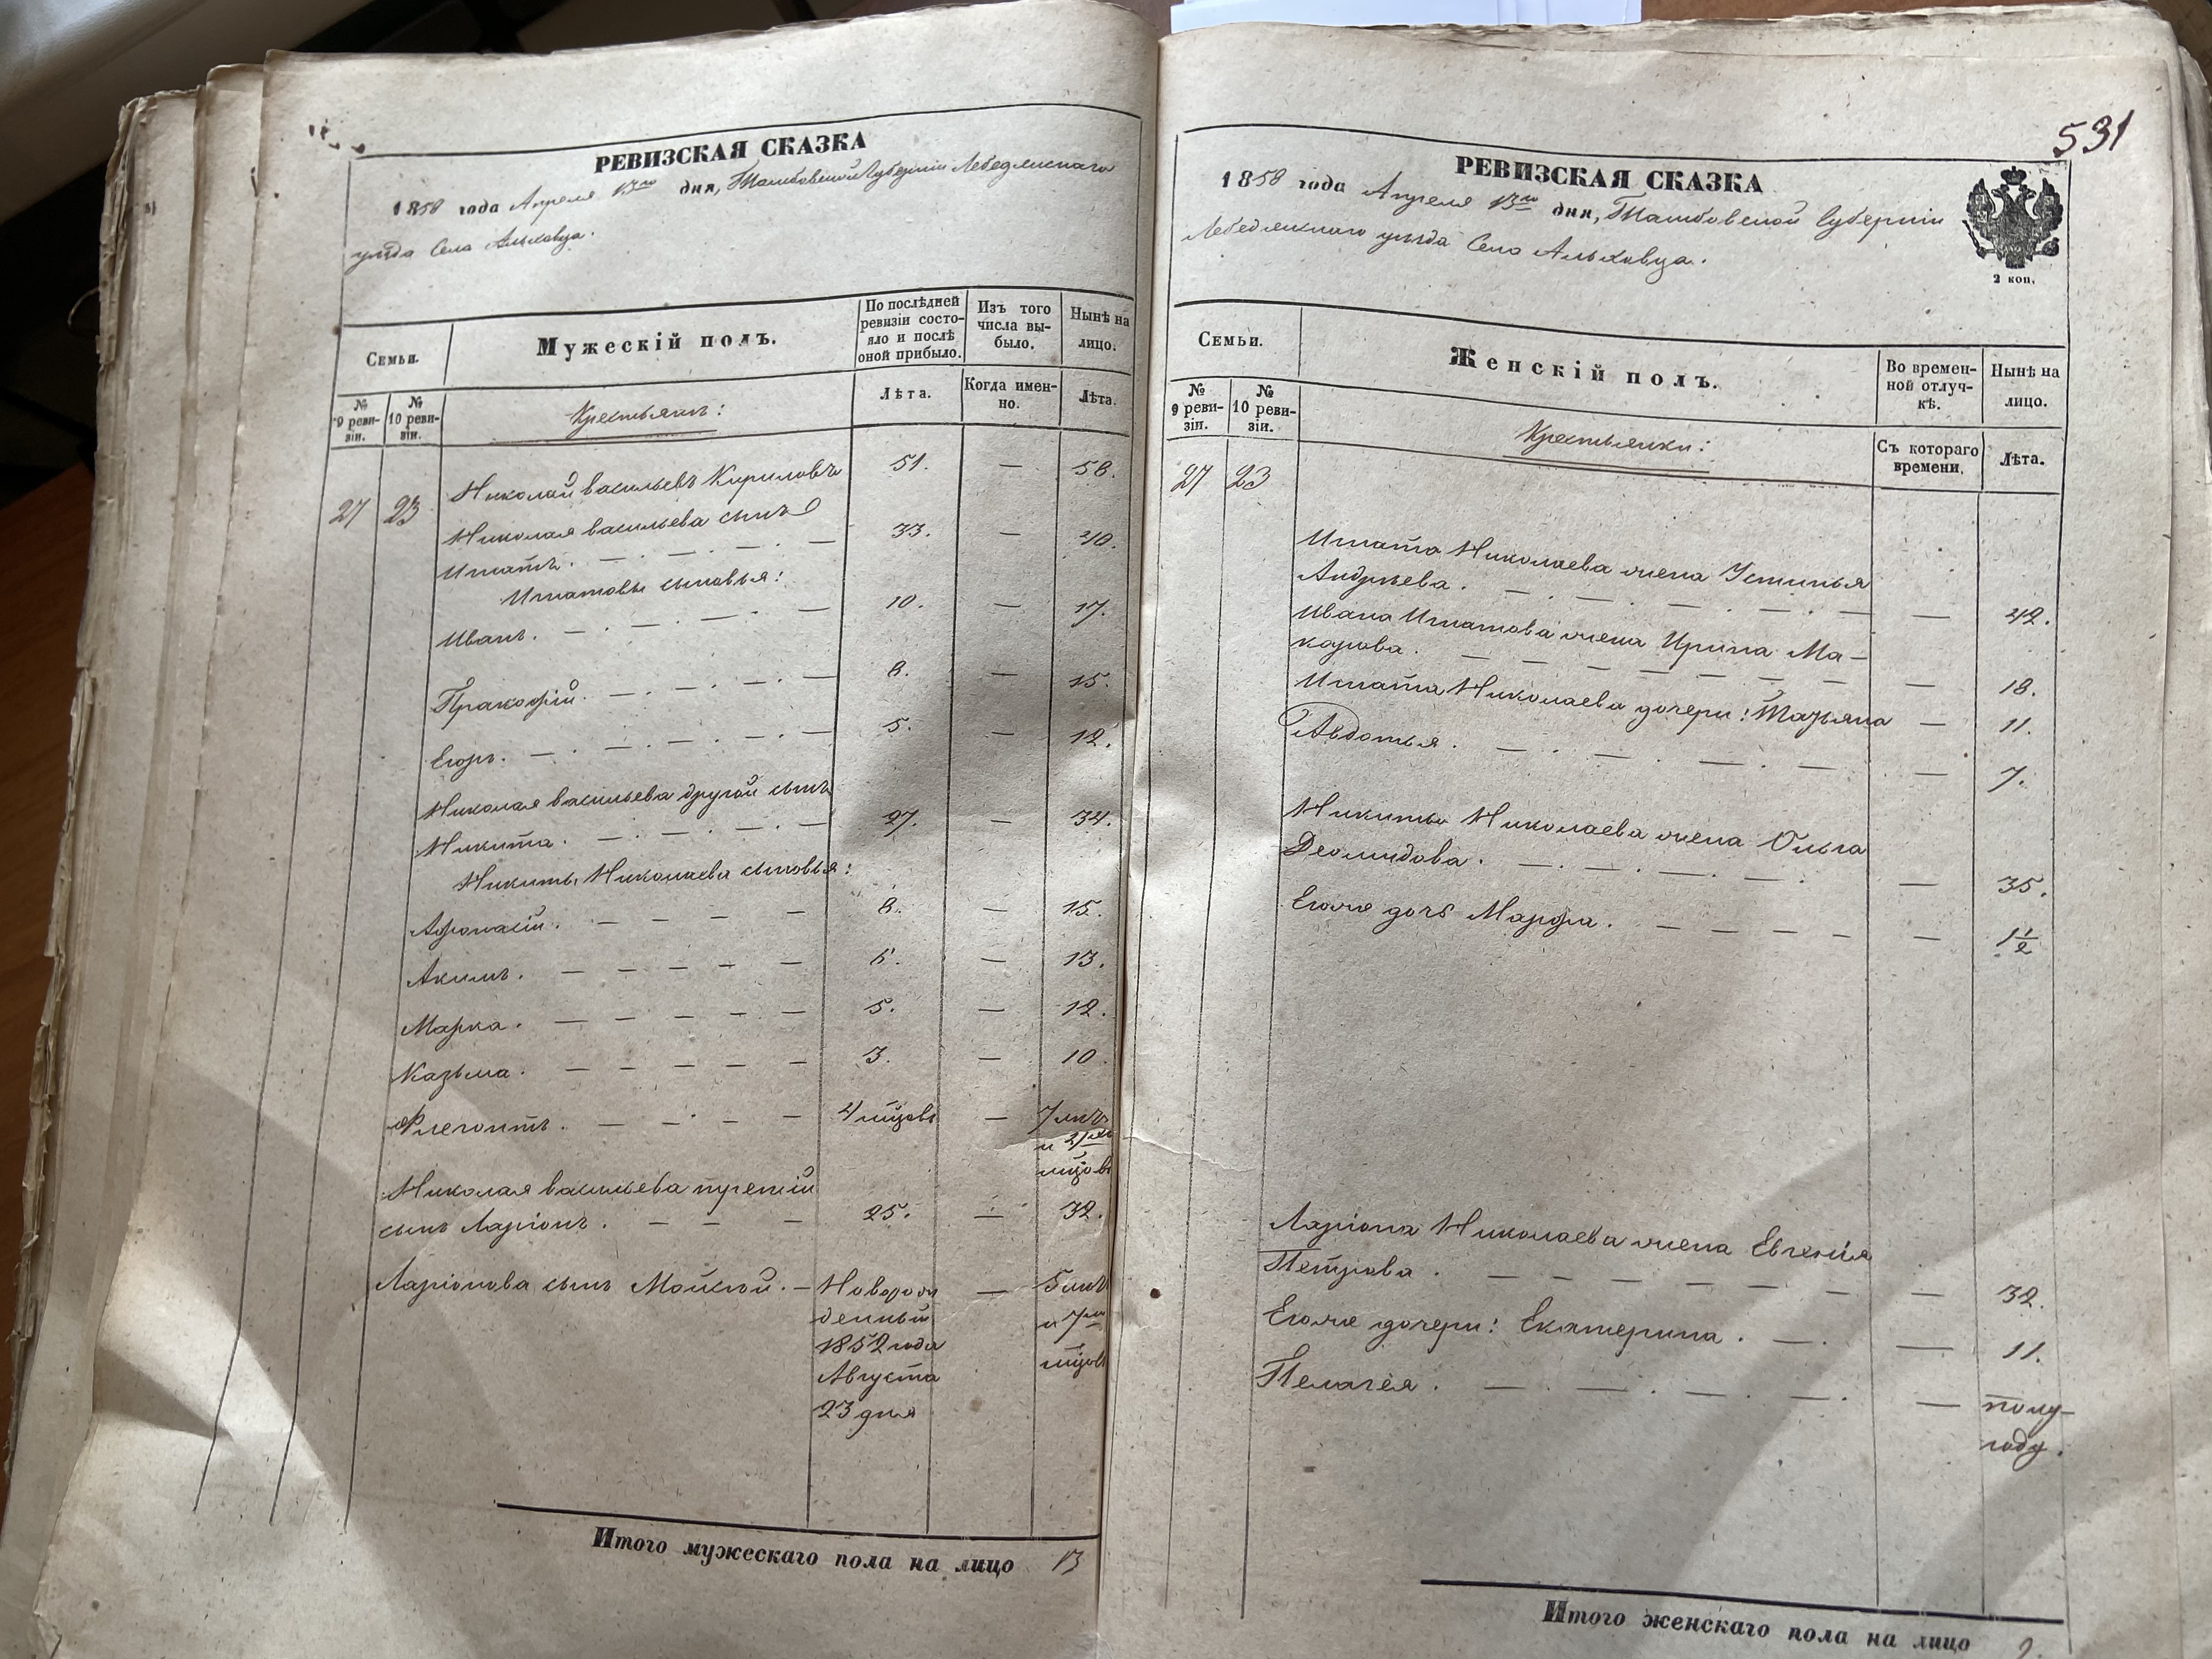 РЕВИЗСКАЯ СКАЗКА
1858 года Апреля 13го дня, Тамбовской Губерніи Лебедянскаго
уѣзда Села Альховца.
Семьи.
Мужескій полъ.
По послѣдней ревизіи состояло и послѣ оной прибыло.
Изъ того числа выбыло.
Нынѣ на лицо.
№ 9 ревизіи.
№ 10 ревизіи.
Крестьянъ:
Лѣта.
Когда именно.
Лѣта.
27 23 Николай васильевъ Кириловъ 51. — 58.
Николая васильева сынъ
Ипатъ. 33. — 40.
Ипатовы сыновья:
Иванъ. 10. — 17.
Пракофій. 8. — 15.
Егоръ. 5. — 12.
Николая васильева другой сынъ
Никита. 27. — 34.
Никиты Николаева сыновья:
Афонасій. 8. — 15.
Акимъ. 6. — 13.
Марка. 5. — 12.
Казьма. 3. — 10.
Флегонтъ. 4 мцовъ — 7 летъ
и 2/ хъ
мцовъ
Николая васильева третій
сынъ Ларіонъ. 25. — 32.
Ларіонова сынъ Мойсей. — Неворож — 5 летъ
денный и 7ми
1852 года мцовъ
Августа
23 дня
Итого мужескаго пола на лицо 13
531
РЕВИЗСКАЯ СКАЗКА
1858 года Апреля 13го дня, Тамбовской Губерніи
Лебедянскаго уѣзда Села Альховца.
2 коп.
Семьи.
Женскій полъ.
Во временной отлучкѣ.
Нынѣ на лицо.
№ 9 ревизіи.
№ 10 ревизіи.
Крестьянки:
Съ котораго времени.
Лѣта.
27 23
Ипата Николаева жена Устинья
Андреева. — 42.
Ивана Ипатова жена Ирина Ма-
карова. — 18.
Ипата Николаева дочери: Татьяна — 11.
Авдотья. — 7.
Никиты Николаева жена Ольга
Деомидова. — 35.
Егоже дочь Марфа. — 1 1/2
Ларіона Николаева жена Евгенія
Петрова. — 32.
Егоже дочери: Екатерина. — 11.
Пелагея. — полу-
году.
Итого женскаго пола на лицо 9.